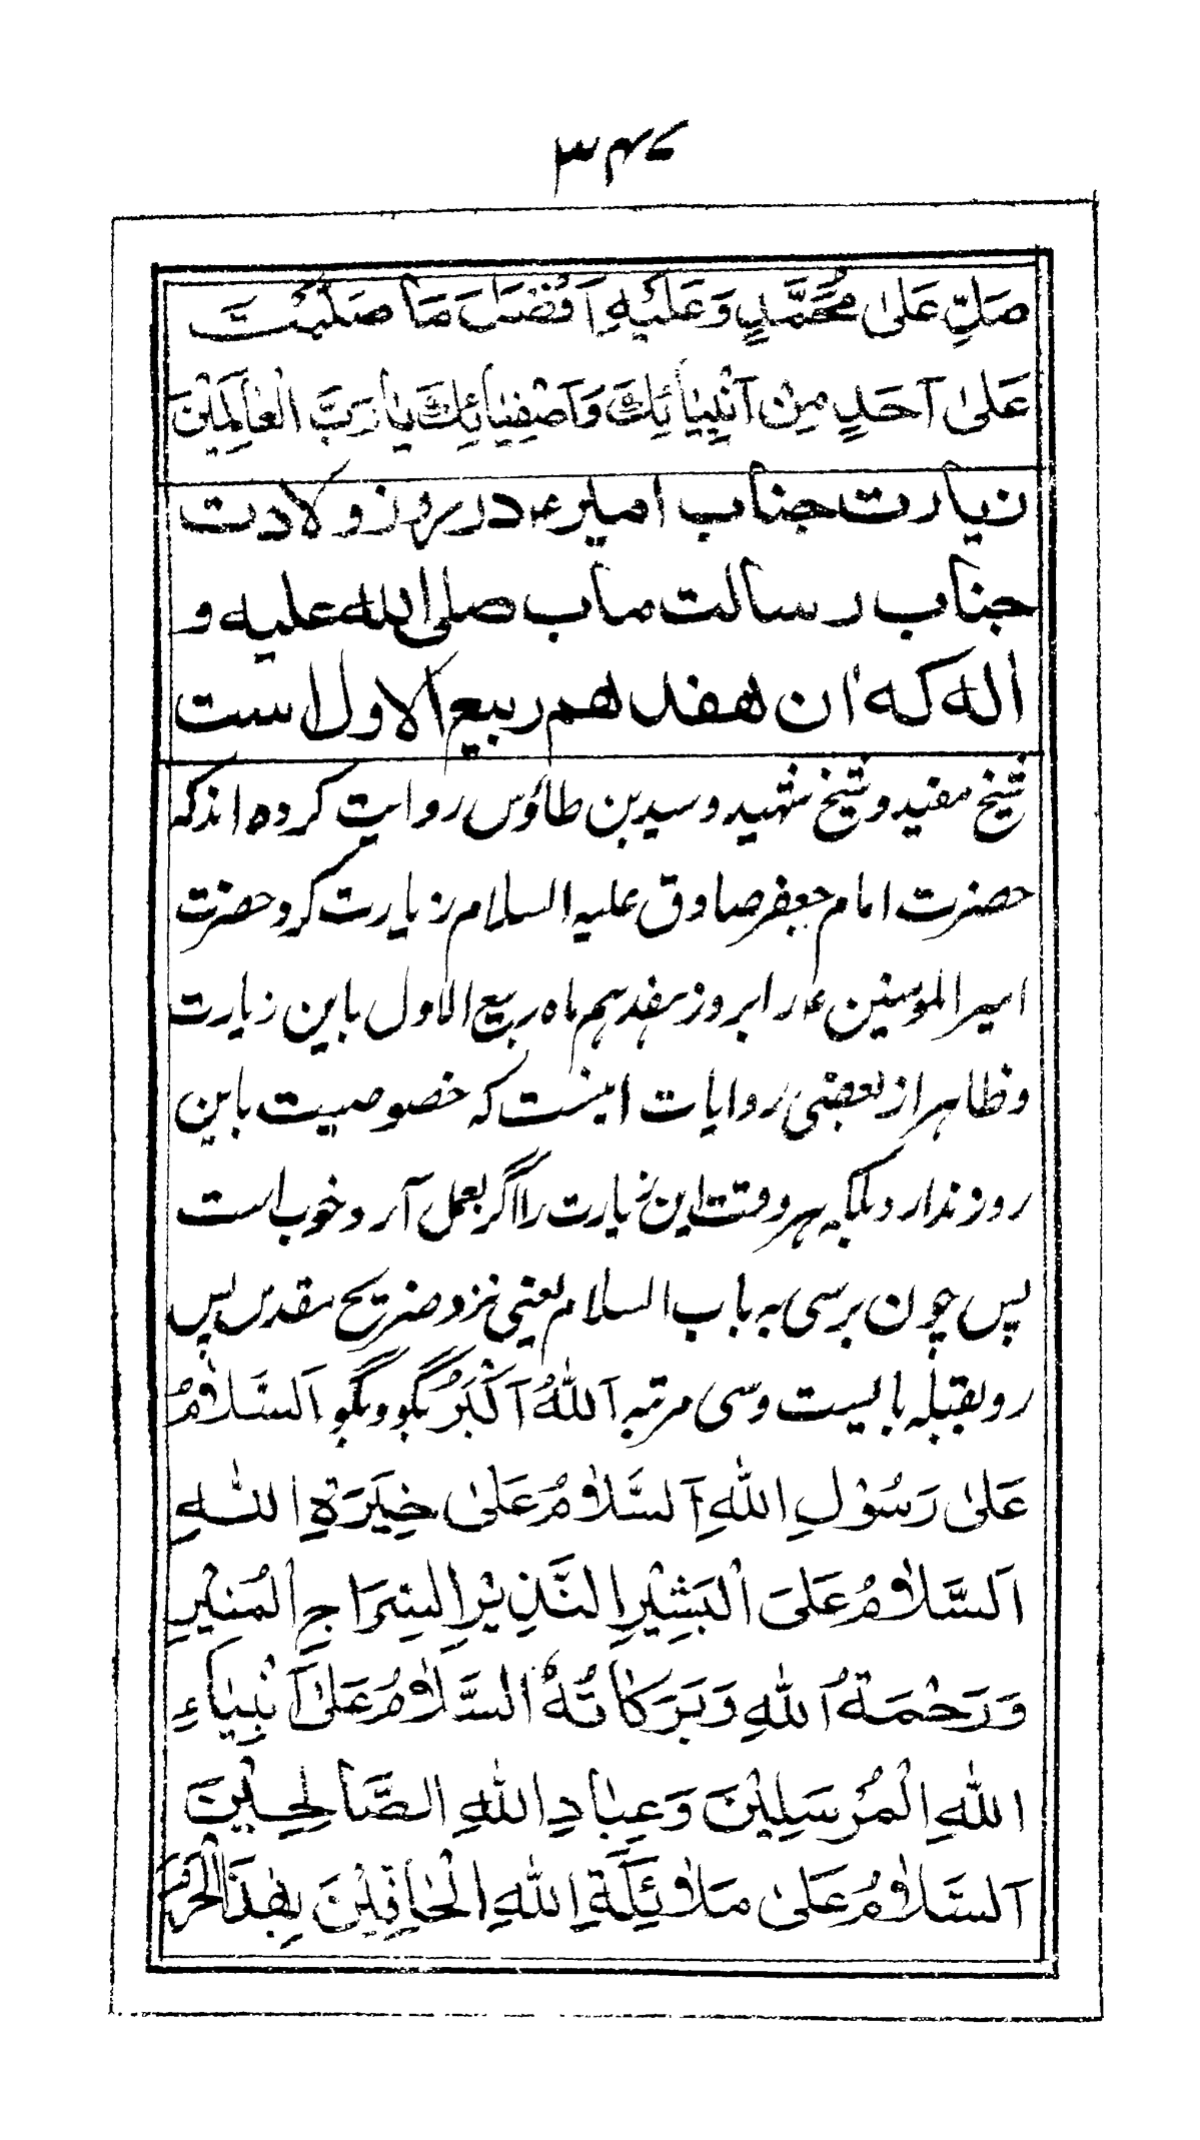 ۳۴۷
صَلِّ عَلیٰ مُحَمَّدٍ وَعَلَیْهِ اَفْضَلَ مَا صَلَّیْتَ
عَلیٰ اَحَدٍ مِنْ اَنْبِیَائِكَ وَاَصْفِیَائِكَ یَا رَبَّ الْعَالَمِیْنَ
زیارت جناب امیر ع در روز ولادت
جناب رسالت ماب صلی الله علیه و
اله که ان هفدهم ربیع الاول است
شیخ مفید و شیخ شهید و سید بن طاؤس روایت کرده اند که
حضرت امام جعفر صادق علیه السلام زیارت کرد حضرت
امیر المومنین ع را بروز هفدهم ماه ربیع الاول باین زیارت
و ظاهر از بعضی روایات اینست که خصوصیت باین
روز ندارد بلکه هر وقت این زیارت را اگر بعمل آرد خوب است
پس چون برسی به باب السلام یعنی نزد ضریح مقدس پس
رو بقبله بایست و سی مرتبه اَللّٰهُ اَکْبَرُ بگو و بگو اَلسَّلَامُ
عَلیٰ رَسُوْلِ اللّٰهِ اَلسَّلَامُ عَلیٰ خِیَرَةِ اللّٰهِ
اَلسَّلَامُ عَلَی الْبَشِیْرِ النَّذِیْرِ السِّرَاجِ الْمُنِیْرِ
وَرَحْمَةُ اللّٰهِ وَبَرَکَاتُهُ اَلسَّلَامُ عَلیٰ اَنْبِیَاءِ
اللّٰهِ الْمُرْسَلِیْنَ وَعِبَادِ اللّٰهِ الصَّالِحِیْنَ
اَلسَّلَامُ عَلیٰ مَلَائِکَةِ اللّٰهِ الْحَافِّیْنَ بِهٰذَا الْحَرَمِ